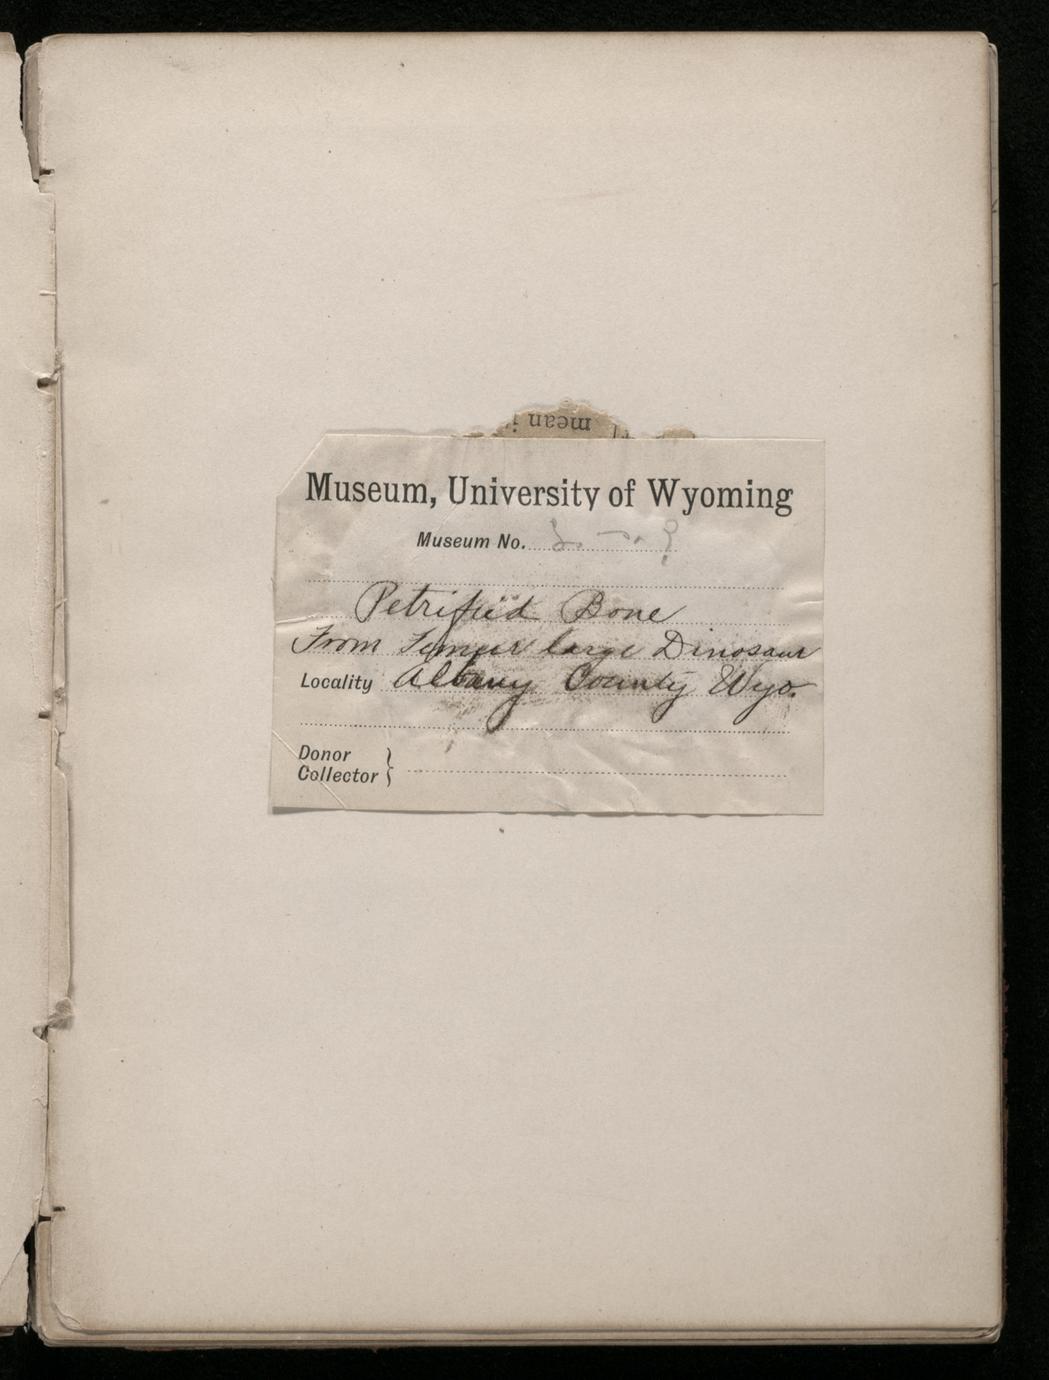 mean
Museum, University of Wyoming
Museum No.
Petrified Bone
From Femur large Dinosaur
Locality Albany County Wyo.
Donor
Collector }